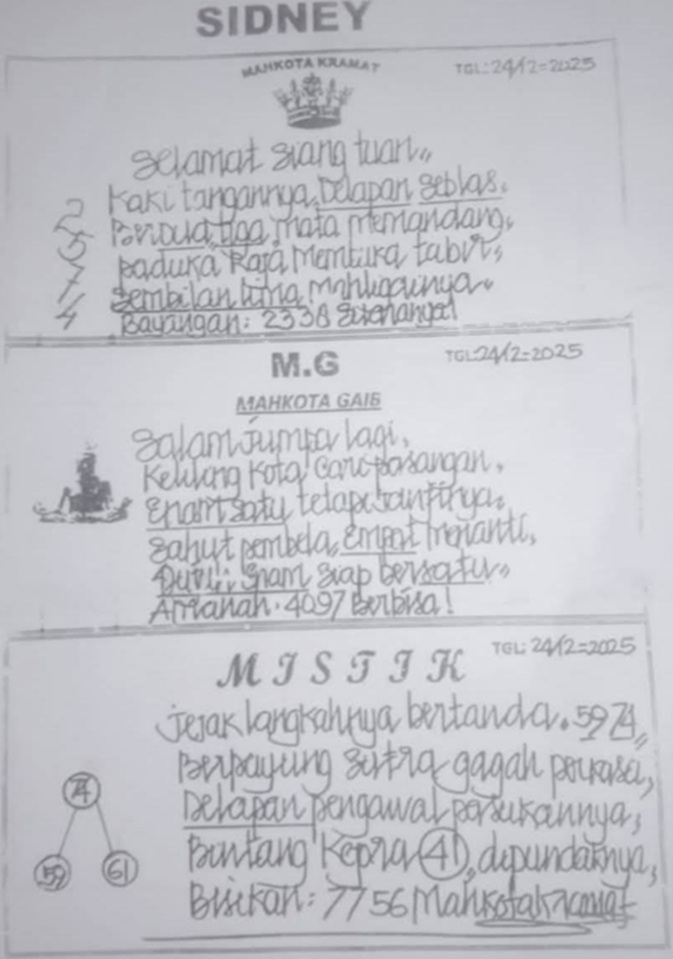 SIDNEY
MAHKOTA KRAMAT
TGL: 24/12=2025
Selamat siang tuan,,
2 Kaki tangannya, Delapan Seblas,
5 Berdua, tiga, mata memandang,
7 paduka Raja Membuka tabir,
4 Sembilan lima, mahligainya,
Bayangan: 2338
M.G
TGL:24/12=2025
MAHKOTA GAIB
Salam Jumpa lagi,
Keliling Kota cari pasangan,
Enam satu, tetapi Janjinya,
Sahut pembela, Empat Menanti,
Enam siap bersatu,,
Amanah. 4097 Berbisa!
MISTIK
TGL: 24/12=2025
Jejak langkahnya bertanda. 59 74,,
Berpayung Sutra gagah perkasa,
Delapan pengawal pasukannya,
74
59 61
Bintang Kepra 41, dipundaknya,
Bisikan: 7756 Mahkota kramat